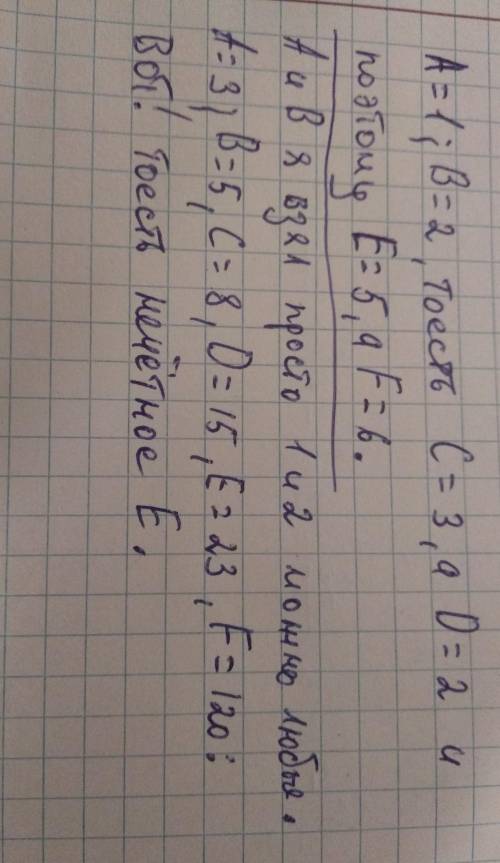 A=1; B=2, тоесть C=3, а D=2 и
поэтому E=5, а F=6.
A и B я взял просто 1 и 2 можно любые.
A=3; B=5, C=8, D=15, E=23, F=120;
Вот! Тоесть нечётное E.